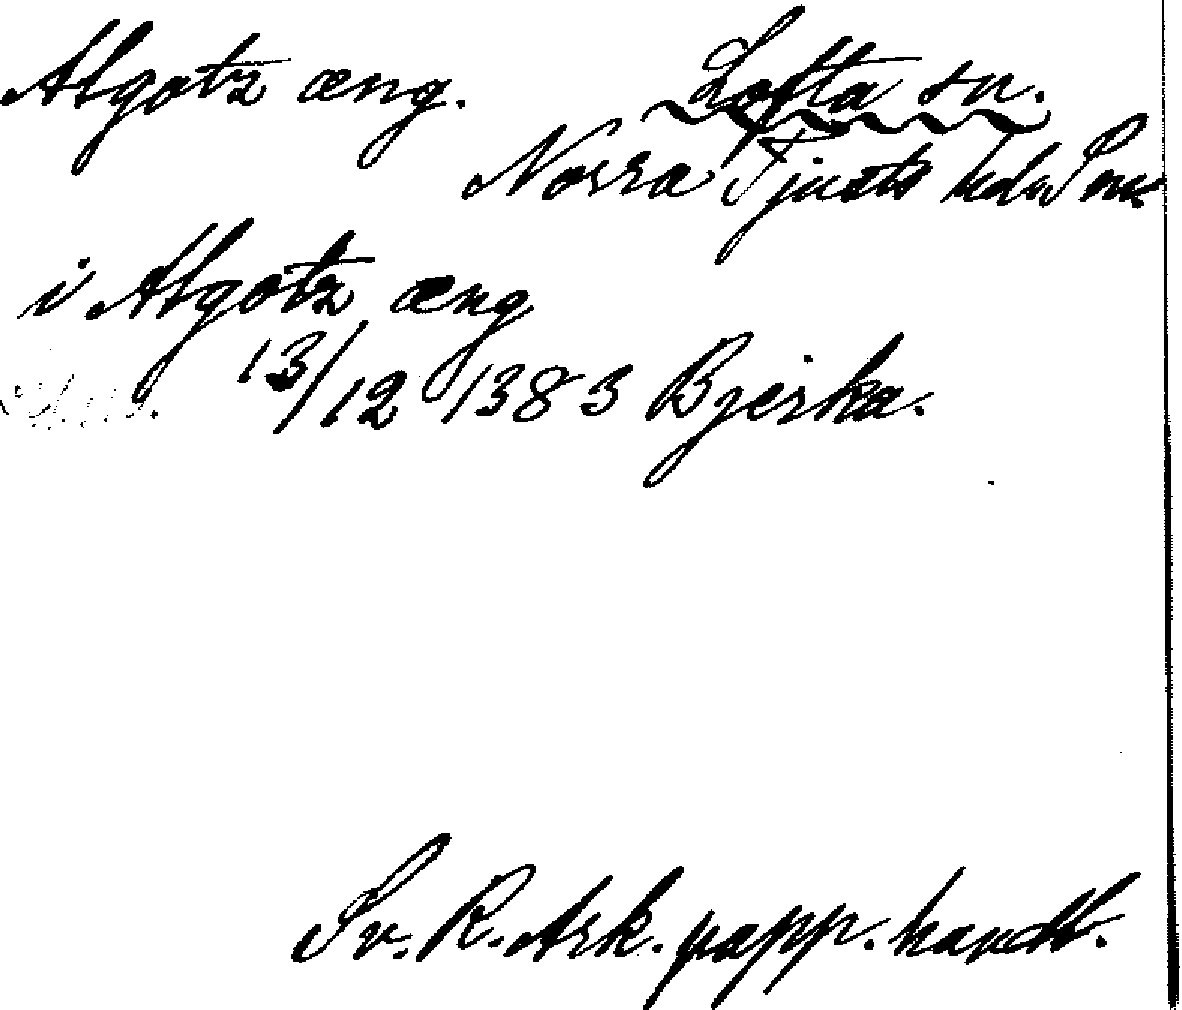 Algotz æng. Lofta sn.
Norra Tjusts hd. Sm.
i Algotz æng
13/12 1383 Bjerka.
Sv. R. Ark. papp. handl.